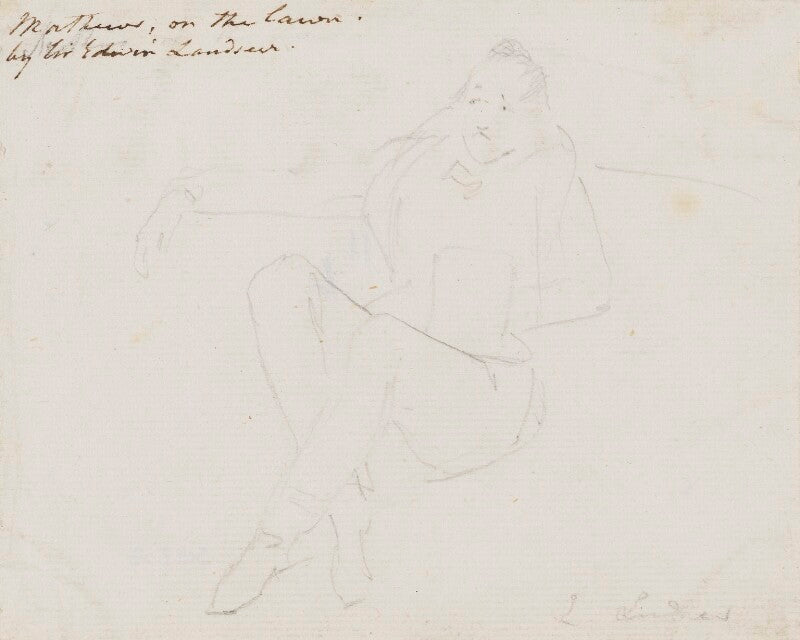 Mathews, on the lawn.
by Sir Edwin Landseer.